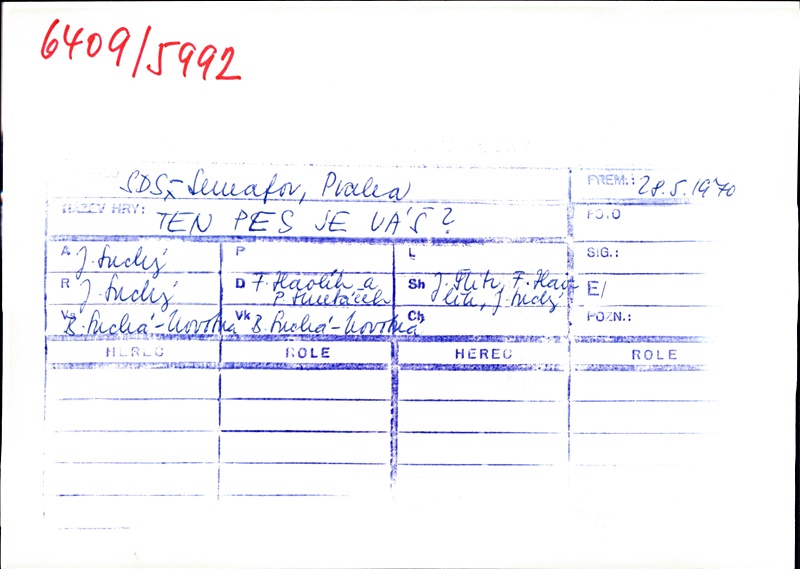 6409/5992
SDS - Semafor, Praha
PREM.: 28.5.1970
NÁZEV HRY: TEN PES JE VÁŠ?
FOTO
A J. Suchý
P
L
SIG.:
R J. Suchý
D F. Havlík a P. Smetáček
Sh J. Šlitr, F. Havlík, J. Suchý
E/
Vs B. Suchá-Novotná
Vk B. Suchá-Novotná
Ch
POZN.:
HEREC ROLE HEREC ROLE